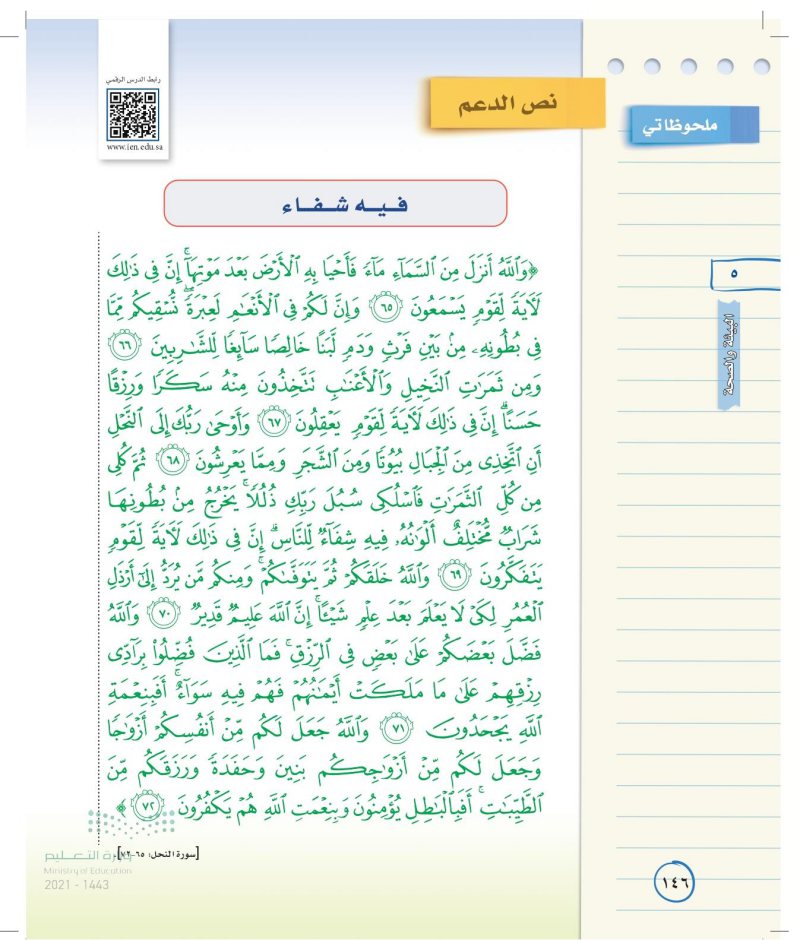 رابط الدرس الرقمي
www.ien.edu.sa
نص الدعم
ملحوظاتي
فيه شفاء
﴿وَٱللَّهُ أَنزَلَ مِنَ ٱلسَّمَآءِ مَآءً فَأَحْيَا بِهِ ٱلْأَرْضَ بَعْدَ مَوْتِهَآ ۚ إِنَّ فِى ذَٰلِكَ
لَـَٔايَةً لِّقَوْمٍ يَسْمَعُونَ ٦٥ وَإِنَّ لَكُمْ فِى ٱلْأَنْعَـٰمِ لَعِبْرَةً ۖ نُّسْقِيكُم مِّمَّا
فِى بُطُونِهِۦ مِنۢ بَيْنِ فَرْثٍ وَدَمٍ لَّبَنًا خَالِصًا سَآئِغًا لِّلشَّـٰرِبِينَ ٦٦
وَمِن ثَمَرَٰتِ ٱلنَّخِيلِ وَٱلْأَعْنَـٰبِ تَتَّخِذُونَ مِنْهُ سَكَرًا وَرِزْقًا
حَسَنًا ۗ إِنَّ فِى ذَٰلِكَ لَـَٔايَةً لِّقَوْمٍ يَعْقِلُونَ ٦٧ وَأَوْحَىٰ رَبُّكَ إِلَى ٱلنَّحْلِ
أَنِ ٱتَّخِذِى مِنَ ٱلْجِبَالِ بُيُوتًا وَمِنَ ٱلشَّجَرِ وَمِمَّا يَعْرِشُونَ ٦٨ ثُمَّ كُلِى
مِن كُلِّ ٱلثَّمَرَٰتِ فَٱسْلُكِى سُبُلَ رَبِّكِ ذُلُلًا ۚ يَخْرُجُ مِنۢ بُطُونِهَا
شَرَابٌ مُّخْتَلِفٌ أَلْوَٰنُهُۥ فِيهِ شِفَآءٌ لِّلنَّاسِ ۗ إِنَّ فِى ذَٰلِكَ لَـَٔايَةً لِّقَوْمٍ
يَتَفَكَّرُونَ ٦٩ وَٱللَّهُ خَلَقَكُمْ ثُمَّ يَتَوَفَّىٰكُمْ ۚ وَمِنكُم مَّن يُرَدُّ إِلَىٰٓ أَرْذَلِ
ٱلْعُمُرِ لِكَىْ لَا يَعْلَمَ بَعْدَ عِلْمٍ شَيْـًٔا ۚ إِنَّ ٱللَّهَ عَلِيمٌ قَدِيرٌ ٧٠ وَٱللَّهُ
فَضَّلَ بَعْضَكُمْ عَلَىٰ بَعْضٍ فِى ٱلرِّزْقِ ۚ فَمَا ٱلَّذِينَ فُضِّلُوا۟ بِرَآدِّى
رِزْقِهِمْ عَلَىٰ مَا مَلَكَتْ أَيْمَـٰنُهُمْ فَهُمْ فِيهِ سَوَآءٌ ۚ أَفَبِنِعْمَةِ
ٱللَّهِ يَجْحَدُونَ ٧١ وَٱللَّهُ جَعَلَ لَكُم مِّنْ أَنفُسِكُمْ أَزْوَٰجًا
وَجَعَلَ لَكُم مِّنْ أَزْوَٰجِكُم بَنِينَ وَحَفَدَةً وَرَزَقَكُم مِّنَ
ٱلطَّيِّبَـٰتِ ۚ أَفَبِٱلْبَـٰطِلِ يُؤْمِنُونَ وَبِنِعْمَتِ ٱللَّهِ هُمْ يَكْفُرُونَ ٧٢﴾
[سورة النحل: ٦٥-٧٢].
٥
البيئة والصحة
وزارة التعليم
Ministry of Education
2021 - 1443
١٤٦